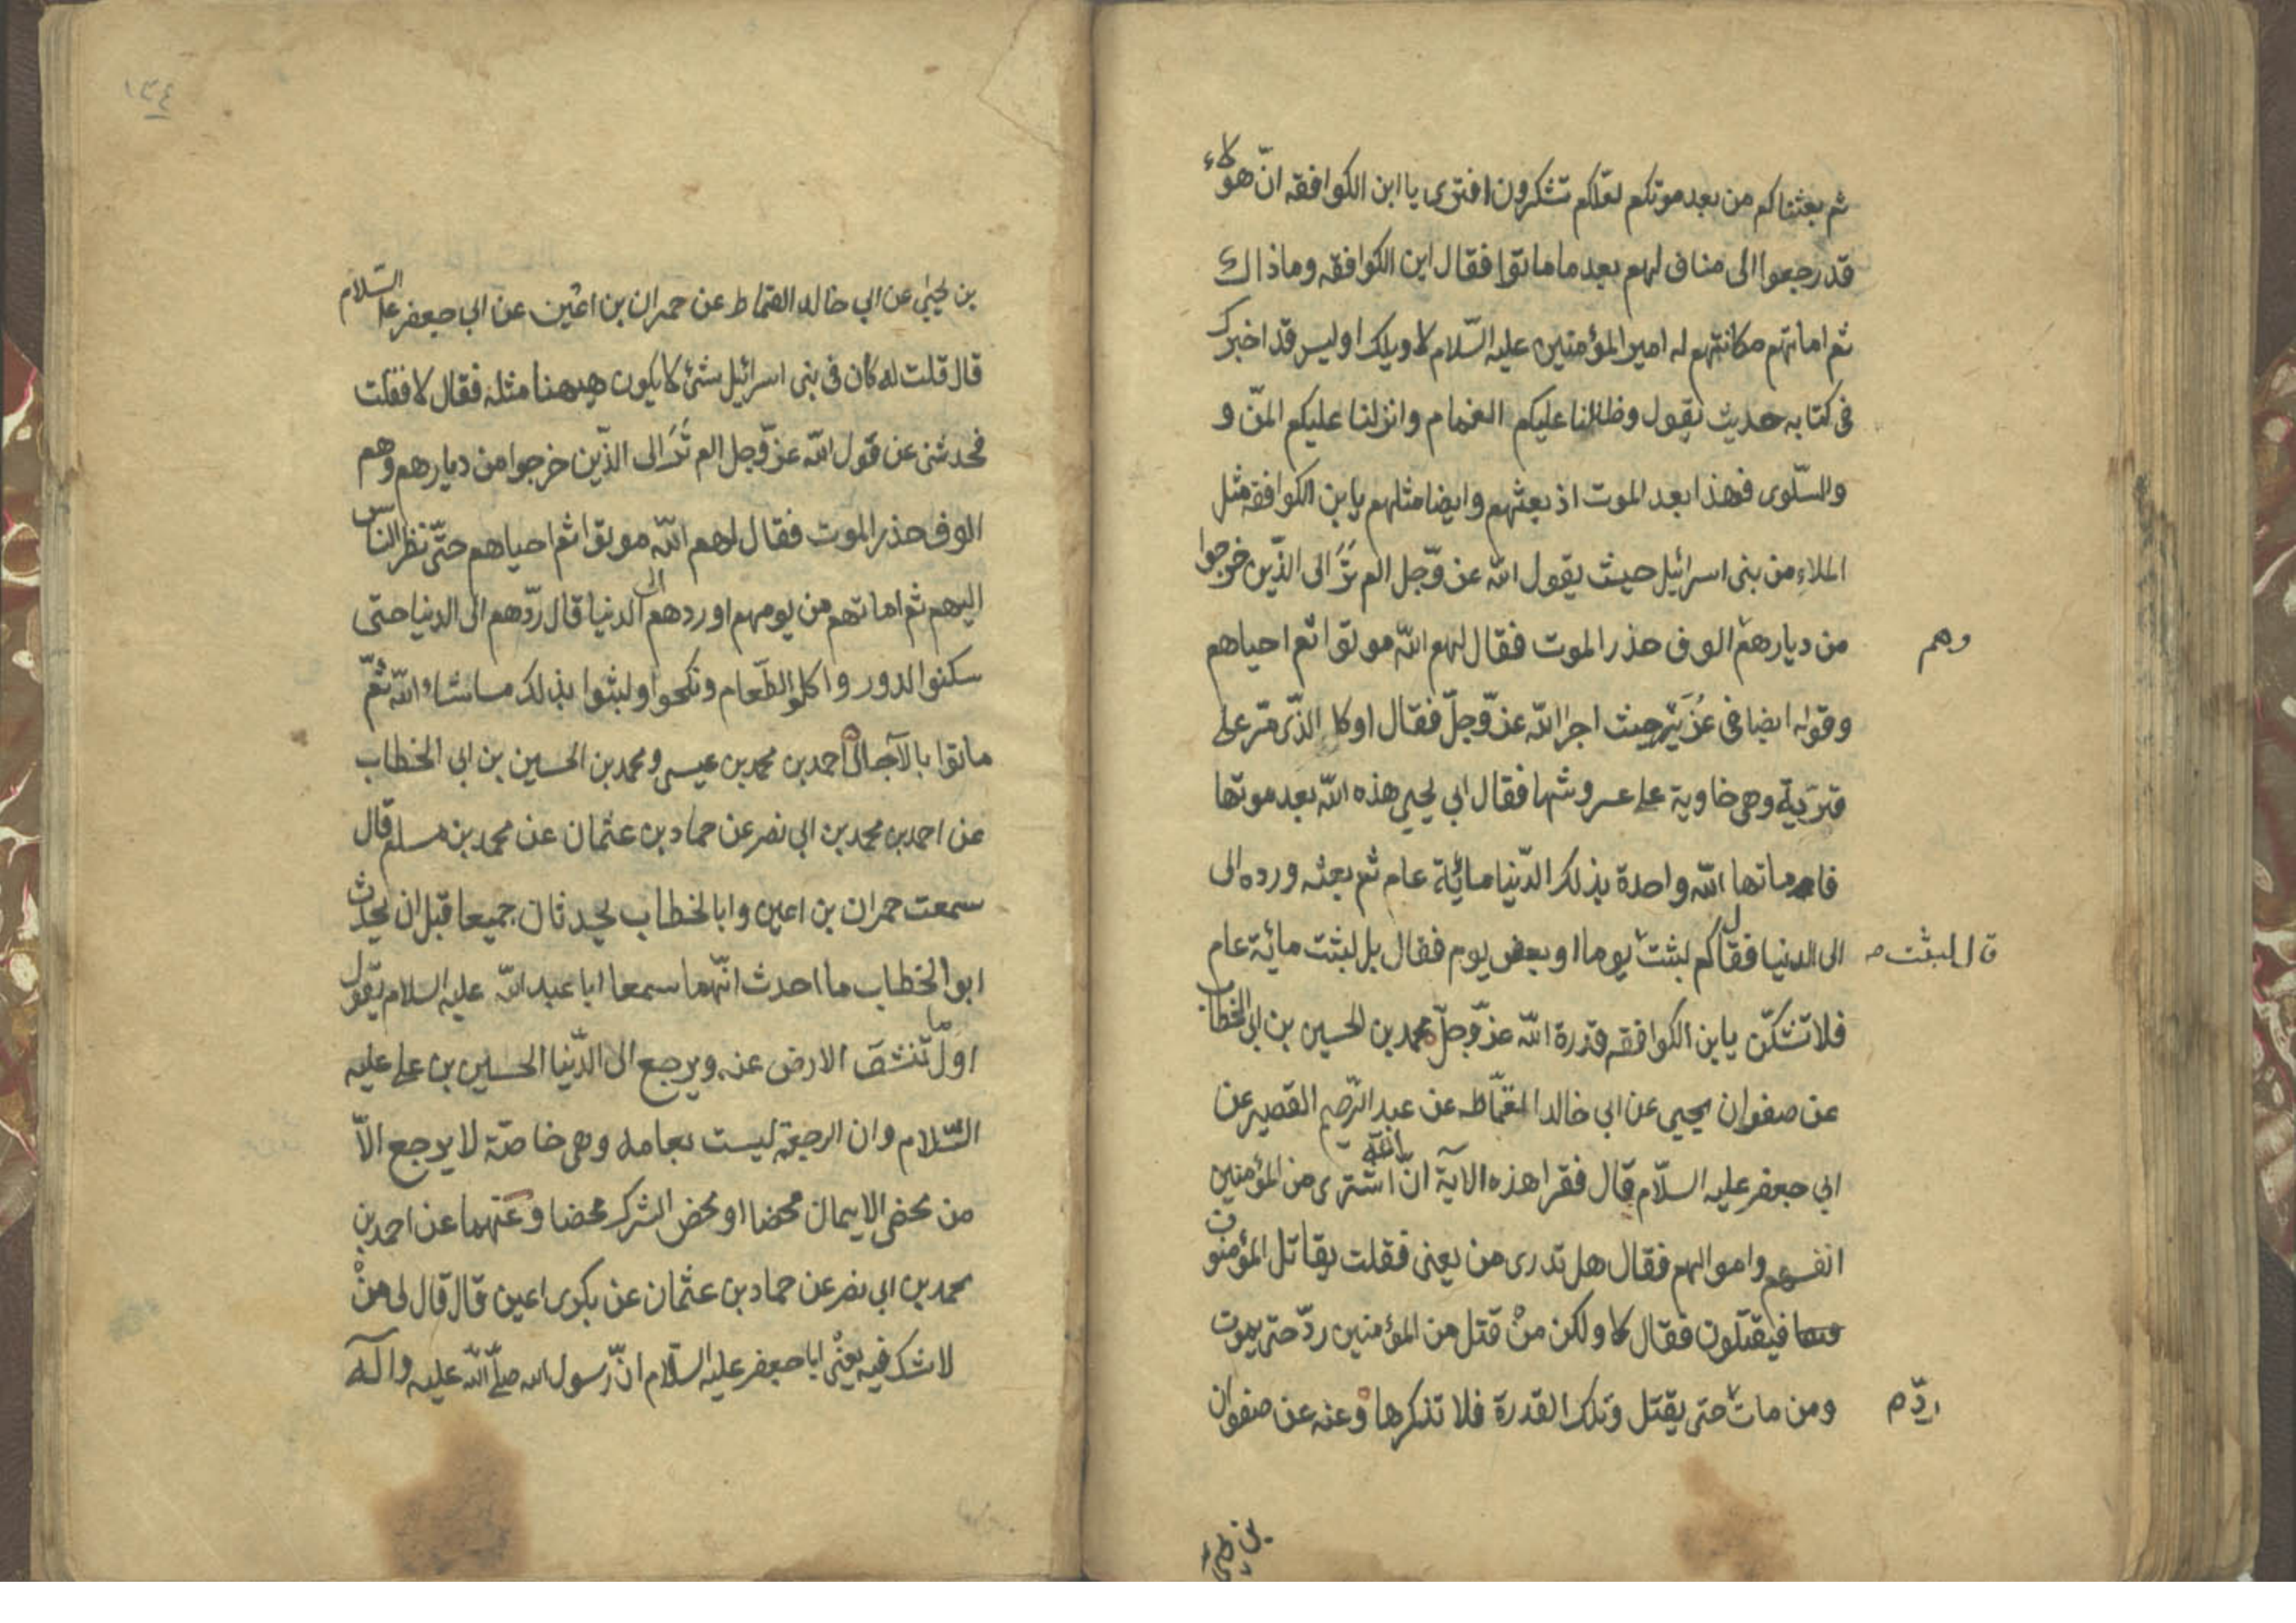 ثم بعثناكم من بعد موتكم لعلكم تشكرون افترى يا ابن الكوا فقه انّ هؤلاء
قد رجعوا الى منازلهم بعد ما ماتوا فقال ابن الكوا فقه وماذاك
ثم اماتهم مكانهم له امير المؤمنين عليه السّلام لا ويلك اوليس قد اخبرك
فى كتابه حديث يقول وظللنا عليكم الغمام وانزلنا عليكم المنّ و
والسّلوى فهذا بعد الموت اذ بعثهم وايضا مثلهم يابن الكوا فقه مثل
الملاء من بنى اسرائيل حيث يقول الله عزّ وجل الم ترَ الى الذّين خرجوا
من ديارهم الوف حذر الموت فقال لهم الله موتوا ثم احياهم
وهم
وقوله ايضا فى عُزَير حيث اخبر الله عزّ وجلّ فقال اوكا لذّى مرّ على
قريّة وهى خاوية على عروشها فقال انى يحيى هذه الله بعد موتها
فاماتها الله واحدة بذلك الدّنيا مائة عام ثم بعثه ورده الى
الى الدنيا فقال كم لبثت يوما او بعض يوم فقال بل لبثت مائة عام
قال لبثت صـ
فلا تشكّن يابن الكوا فقه قدرة الله عزّ وجلّ محمد بن الحسين بن ابى الخطاب
عن صفوان يحيى عن ابى خالد القمّاط عن عبد الرّحيم القصير عن
ابى جعفر عليه السلّام قال فقرا هذه الآية انّ الله اشترى من المؤمنين
انفسهم واموالهم فقال هل تدرى من يعنى فقلت يقاتل المؤمنون
فيقتلون فقال لا ولكن منْ قتل من المؤمنين ردّ حتى يموت
ومن مات حتى يقتل وتلك القدرة فلا تنكرها وعنه عن صفوان
ردّ م
بن يحيى
١٣٤
بن يحيىٰ عن ابى خالد القمّاط عن حمران بن اعين عن ابى جعفر عليه السّلام
قال قلت له كان فى بنى اسرائيل شئ لا يكون هيهنا مثله فقال لا فقلت
فحدثنى عن قول الله عزّ وجل الم ترَ الى الذّين خرجوا من ديارهم وهم
الوف حذر الموت فقال لهم الله موتوا ثم احياهم حتّى نظر النّاس
اليهم ثم اماتهم من يومهم او ردهم الى الدنيا قال ردّهم الى الدنيا حتى
سكنوا الدور واكلوا الطّعام ونكحوا ولبثوا بذلك ما شاء الله ثمّ
ماتوا بالآجال احمد بن محمد بن عيسى ومحمد بن الحسين بن ابى الخطاب
عن احمد بن محمد بن ابى نصر عن حماد بن عثمان عن محمد بن مسلم قال
سمعت حمران بن اعين وابا الخطاب يحدثان جميعا قبل ان يحدث
ابو الخطاب ما احدث انّهما سمعا ابا عبد الله عليه السلام يقول
اوّل ما تنشق الارض عنه ويرجع الى الدّنيا الحسين بن على عليه
السّلام وان الرجعة ليست بعامه وهى خاصّة لا يرجع الاّ
من محض الايمان محضا او محض الشرك محضا وعنهما عن احمد بن
محمد بن ابى نصر عن حماد بن عثمان عن بكر بن اعين قال قال لى منْ
لا شك فيه يعنى ابا جعفر عليه السلّام انّ رسول الله صلّى الله عليه وآله